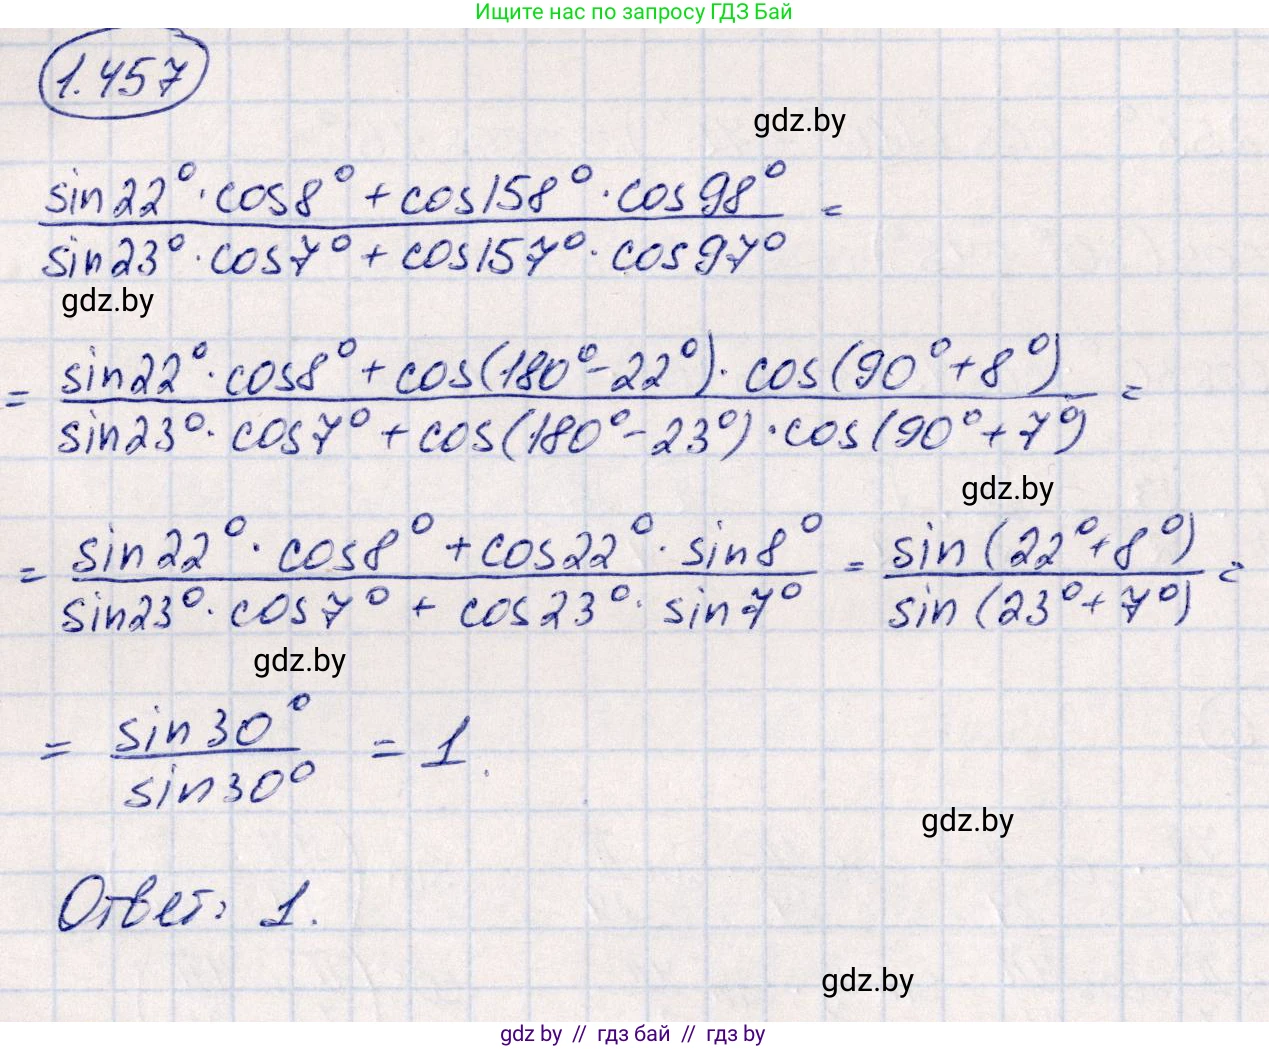 Ищите нас по запросу ГДЗ Бай
1.457
gdz.by
sin22°·cos8° + cos158°·cos98° / sin23°·cos7° + cos157°·cos97° =
gdz.by
= sin22°·cos8° + cos(180°-22°)·cos(90°+8°) / sin23°·cos7° + cos(180°-23°)·cos(90°+7°) =
gdz.by
= sin22°·cos8° + cos22°·sin8° / sin23°·cos7° + cos23°·sin7° = sin(22°+8°) / sin(23°+7°) =
gdz.by
= sin30° / sin30° = 1.
gdz.by
Ответ: 1.
gdz.by
gdz.by // гдз бай // гдз by